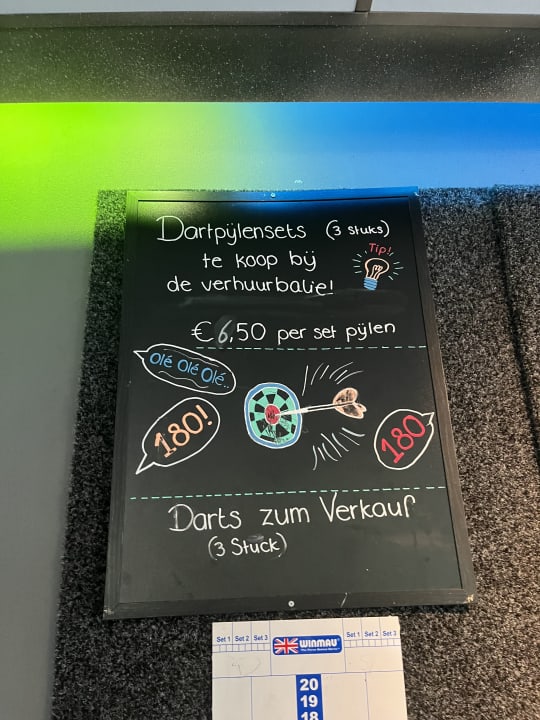 Dartpijlensets (3 stuks)
te koop bij
de verhuurbalie!
Tip!
€ 6,50 per set pijlen
Olé Olé Olé..
180!
180
Darts zum Verkauf
(3 Stuck)
Set 1 Set 2 Set 3 WINMAU Set 1 Set 2 Set 3
20
19
18